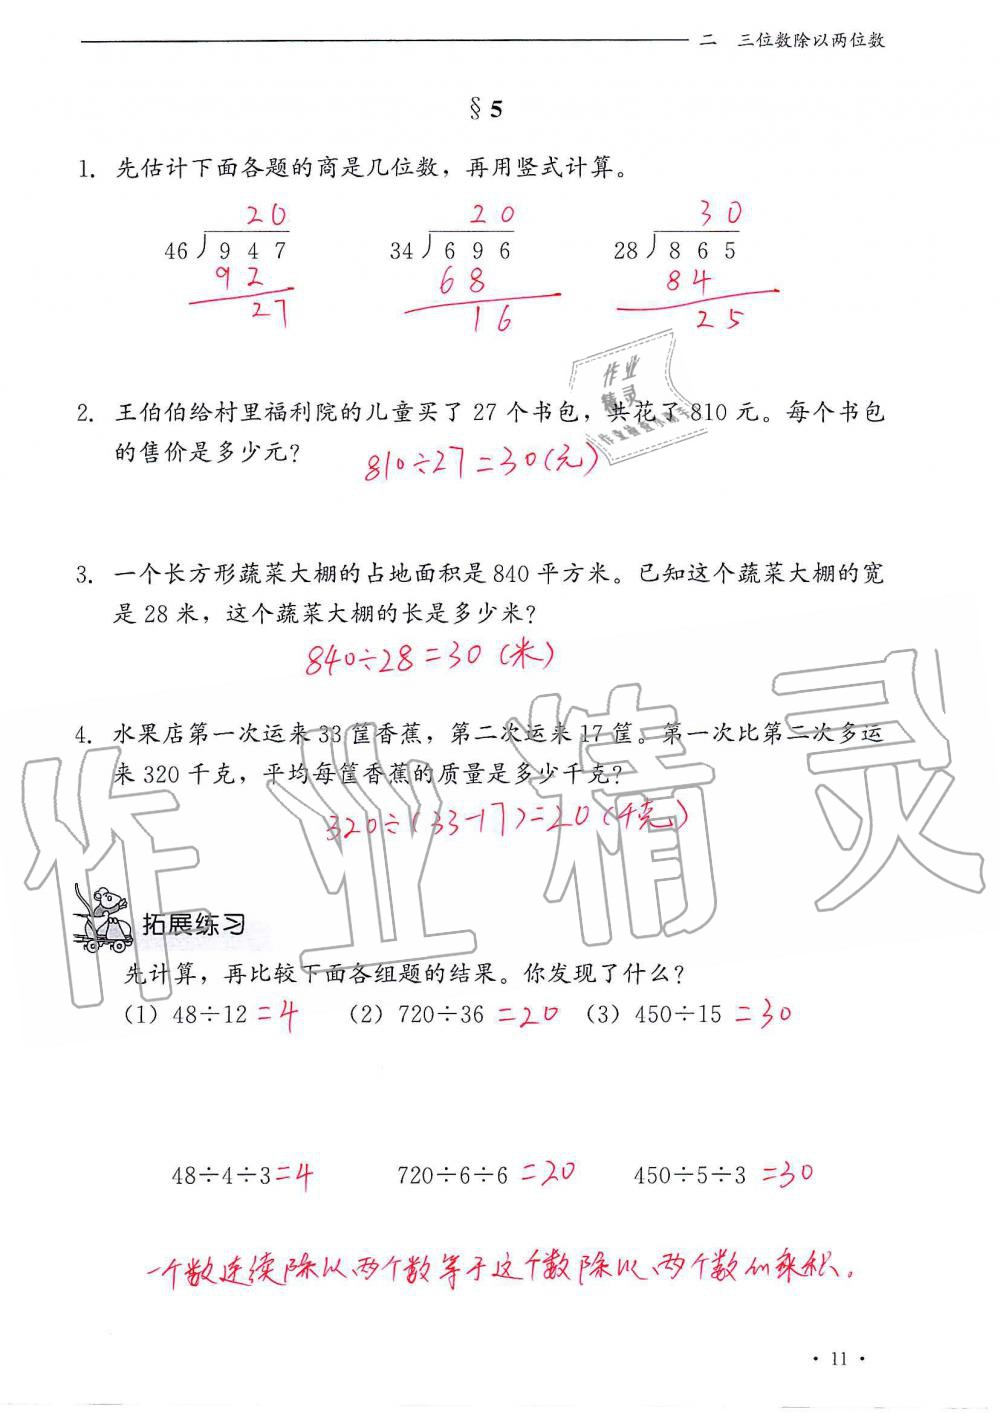 二 三位数除以两位数
§5
1. 先估计下面各题的商是几位数，再用竖式计算。
20 20 30
46 947 34 696 28 865
92 68 84
27 16 25
作业
精灵
2. 王伯伯给村里福利院的儿童买了27个书包，共花了810元。每个书包
的售价是多少元？
810÷27=30(元)
3. 一个长方形蔬菜大棚的占地面积是840平方米。已知这个蔬菜大棚的宽
是28米，这个蔬菜大棚的长是多少米？
840÷28=30(米)
4. 水果店第一次运来33筐香蕉，第二次运来17筐。第一次比第二次多运
来320千克，平均每筐香蕉的质量是多少千克？
320÷(33-17)=20(千克)
作业精灵
拓展练习
先计算，再比较下面各组题的结果。你发现了什么？
(1) 48÷12=4 (2) 720÷36=20 (3) 450÷15=30
48÷4÷3=4 720÷6÷6=20 450÷5÷3=30
一个数连续除以两个数等于这个数除以两个数的乘积。
·11·